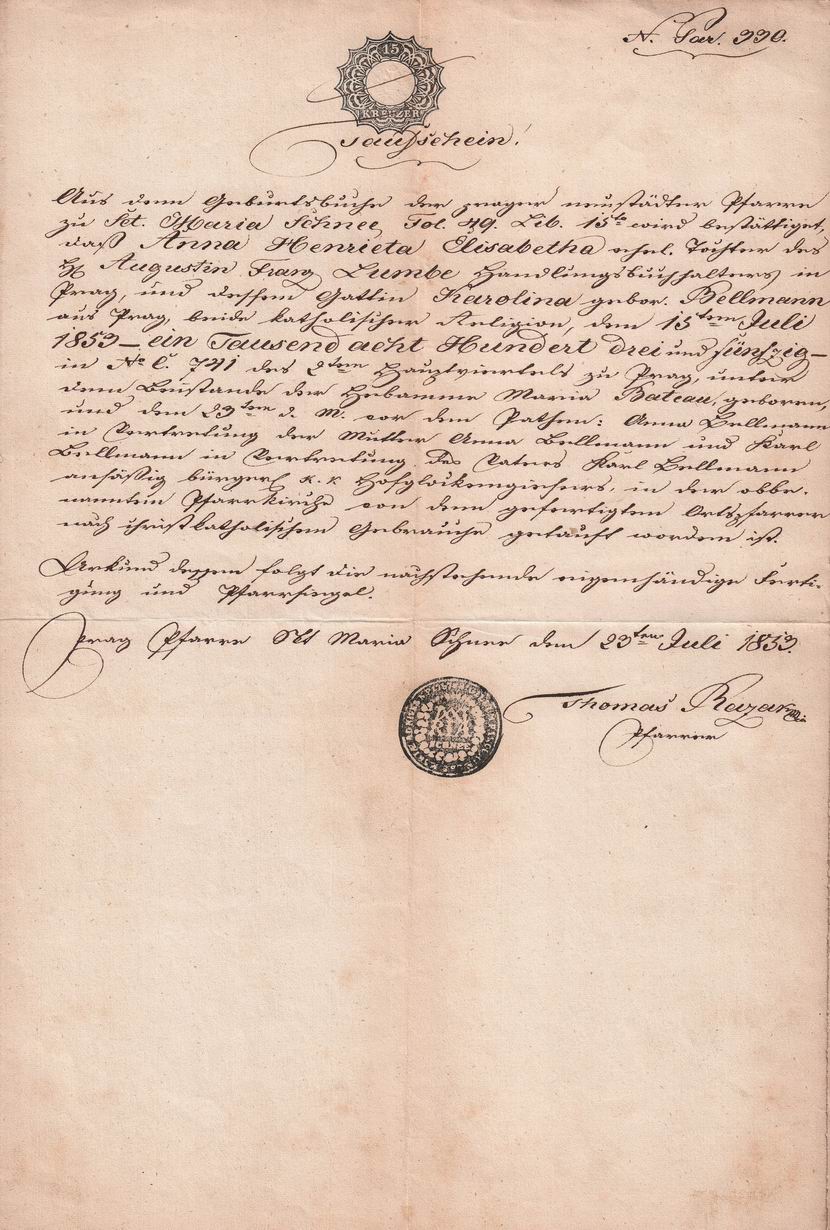 N. Par. 390.
15
KREUZER
Taufschein.
Aus dem Geburtsbuche der prager neustädter Pfarre
zu Skt. Maria Schnee, Fol. 49. Lib. 15te wird bestättiget,
daß Anna Henrieta Elisabetha ehel. Tochter des
H Augustin Franz Lumbe Handlungsbuchhalters in
Prag, und dessen Gattin Karolina gebor. Bellmann
aus Prag, beide katholischer Religion, den 15ten Juli
1853 – ein Tausend acht Hundert drei und fünfzig –
in No C. 741 des 2ten Hauptviertels zu Prag, unter
dem Beistande der Hebamme Maria Bateau, geboren,
und den 23ten d. M. vor den Pathen: Anna Bellmann
in Vertretung der Mutter Anna Bellmann und Karl
Bellmann in Vertretung des Vaters Karl Bellmann
ansäßig bürgerl k. k Hofglockengießers, in der obbe-
nannten Pfarrkirche von dem gefertigten Ortspfarrer
nach christkatholischem Gebrauche getauft worden ist.
Urkund dessen folgt die nachstehende eigenhändige Ferti-
gung und Pfarrsiegel.
Prag Pfarre Skt Maria Schnee den 23ten Juli 1853.
Thomas
Pfarrer